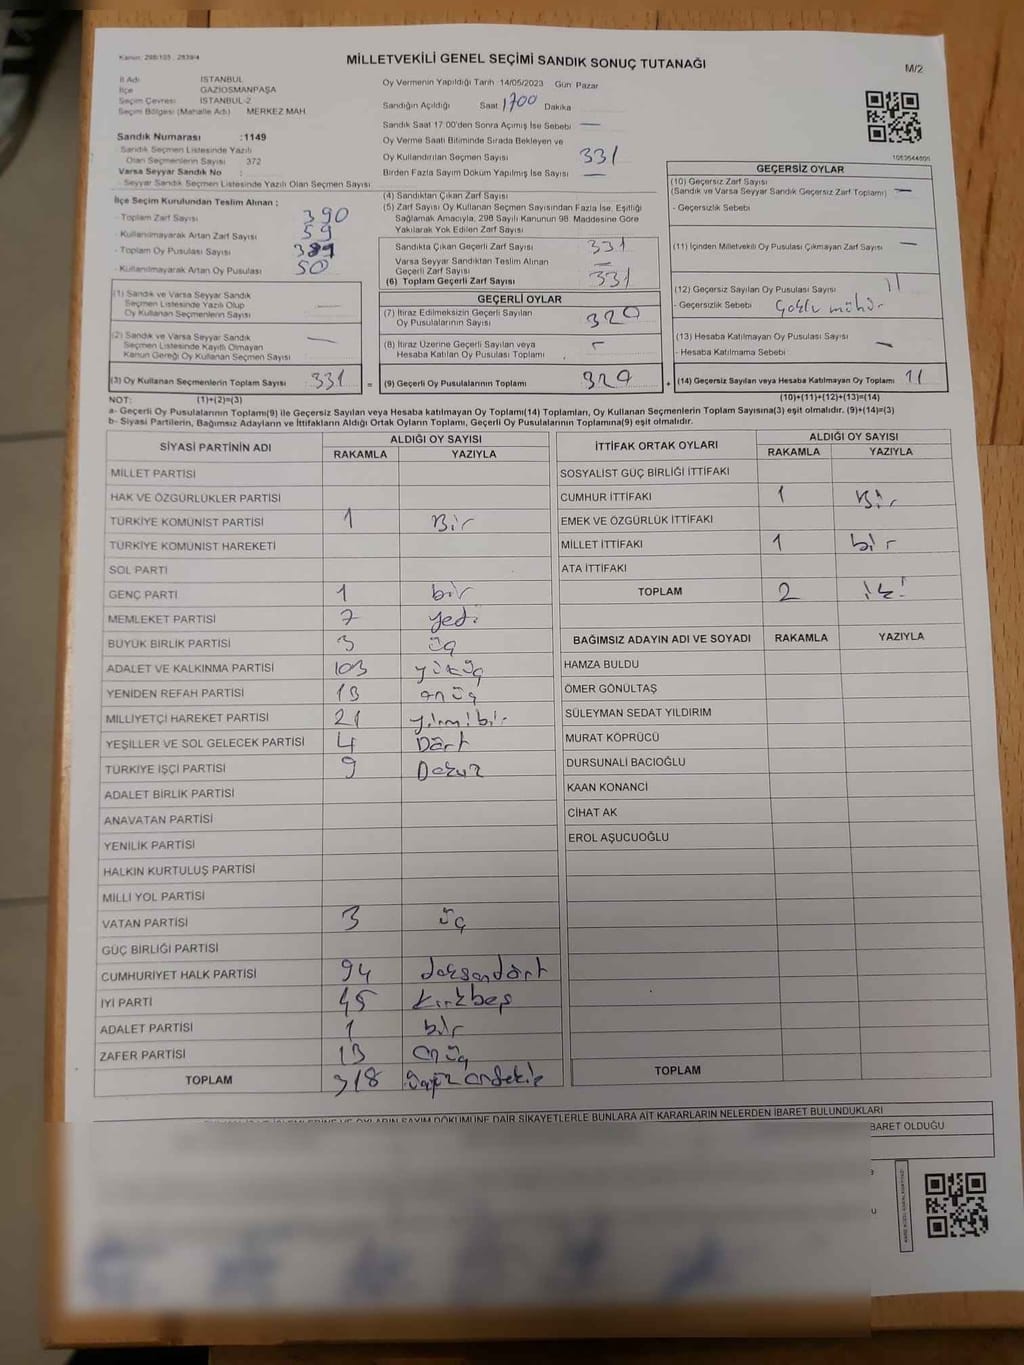 Kanun: 298/105 , 2839/4
MİLLETVEKİLİ GENEL SEÇİMİ SANDIK SONUÇ TUTANAĞI
M/2
İl Adı : İSTANBUL
İlçe : GAZİOSMANPAŞA
Seçim Çevresi : İSTANBUL-2
Seçim Bölgesi (Mahalle Adı) : MERKEZ MAH.
Sandık Numarası : 1149
Sandık Seçmen Listesinde Yazılı
Olan Seçmenlerin Sayısı : 372
Varsa Seyyar Sandık No :
Seyyar Sandık Seçmen Listesinde Yazılı Olan Seçmen Sayısı :
Oy Vermenin Yapıldığı Tarih 14/05/2023 Gün Pazar
Sandığın Açıldığı Saat 1700 Dakika
Sandık Saat 17:00'den Sonra Açımış İse Sebebi —
Oy Verme Saati Bitiminde Sırada Bekleyen ve
Oy Kullandırılan Seçmen Sayısı 331
Birden Fazla Sayım Döküm Yapılmış İse Sayısı —
İlçe Seçim Kurulundan Teslim Alınan :
- Toplam Zarf Sayısı 390
- Kullanılmayarak Artan Zarf Sayısı 59
- Toplam Oy Pusulası Sayısı
- Kullanılmayarak Artan Oy Pusulası 50
(1) Sandık ve Varsa Seyyar Sandık
Seçmen Listesinde Yazılı Olup
Oy Kullanan Seçmenlerin Sayısı —
(2) Sandık ve Varsa Seyyar Sandık
Seçmen Listesinde Kayıtlı Olmayan
Kanun Gereği Oy Kullanan Seçmen Sayısı —
(3) Oy Kullanan Seçmenlerin Toplam Sayısı 331 =
(4) Sandıktan Çıkan Zarf Sayısı
(5) Zarf Sayısı Oy Kullanan Seçmen Sayısından Fazla İse, Eşitliği
Sağlamak Amacıyla, 298 Sayılı Kanunun 98. Maddesine Göre
Yakılarak Yok Edilen Zarf Sayısı
Sandıkta Çıkan Geçerli Zarf Sayısı 331
Varsa Seyyar Sandıktan Teslim Alınan
Geçerli Zarf Sayısı —
(6) Toplam Geçerli Zarf Sayısı 331
GEÇERLİ OYLAR
(7) İtiraz Edilmeksizin Geçerli Sayılan
Oy Pusulalarının Sayısı 320
(8) İtiraz Üzerine Geçerli Sayılan veya
Hesaba Katılan Oy Pusulası Toplamı
(9) Geçerli Oy Pusulalarının Toplamı 320 +
1063644809
GEÇERSİZ OYLAR
(10) Geçersiz Zarf Sayısı
(Sandık ve Varsa Seyyar Sandık Geçersiz Zarf Toplamı) —
- Geçersizlik Sebebi
(11) İçinden Milletvekili Oy Pusulası Çıkmayan Zarf Sayısı —
(12) Geçersiz Sayılan Oy Pusulası Sayısı 11
- Geçersizlik Sebebi Çoklu mühür
(13) Hesaba Katılmayan Oy Pusulası Sayısı —
- Hesaba Katılmama Sebebi
(14) Geçersiz Sayılan veya Hesaba Katılmayan Oy Toplamı 11
NOT: (1)+(2)=(3) (10)+(11)+(12)+(13)=(14)
a- Geçerli Oy Pusulalarının Toplamı(9) ile Geçersiz Sayılan veya Hesaba katılmayan Oy Toplamı(14) Toplamları, Oy Kullanan Seçmenlerin Toplam Sayısına(3) eşit olmalıdır. (9)+(14)=(3)
b- Siyasi Partilerin, Bağımsız Adayların ve İttifakların Aldığı Oyların Toplamı, Geçerli Oy Pusulalarının Toplamına(9) eşit olmalıdır.
SİYASİ PARTİNİN ADI
ALDIĞI OY SAYISI
RAKAMLA YAZIYLA
MİLLET PARTİSİ
HAK VE ÖZGÜRLÜKLER PARTİSİ
TÜRKİYE KOMÜNİST PARTİSİ 1 Bir
TÜRKİYE KOMÜNİST HAREKETİ
SOL PARTİ
GENÇ PARTİ 1 bir
MEMLEKET PARTİSİ 7 yedi
BÜYÜK BİRLİK PARTİSİ 3 üç
ADALET VE KALKINMA PARTİSİ 103 yüzüç
YENİDEN REFAH PARTİSİ 13 onüç
MİLLİYETÇİ HAREKET PARTİSİ 21 yirmibir
YEŞİLLER VE SOL GELECEK PARTİSİ 4 Dört
TÜRKİYE İŞÇİ PARTİSİ 9 Dokuz
ADALET BİRLİK PARTİSİ
ANAVATAN PARTİSİ
YENİLİK PARTİSİ
HALKIN KURTULUŞ PARTİSİ
MİLLİ YOL PARTİSİ
VATAN PARTİSİ 3 üç
GÜÇ BİRLİĞİ PARTİSİ
CUMHURİYET HALK PARTİSİ 94 doksandört
İYİ PARTİ 45 kırkbeş
ADALET PARTİSİ 1 bir
ZAFER PARTİSİ 13 onüç
TOPLAM 318 üçyüz onsekiz
İTTİFAK ORTAK OYLARI
ALDIĞI OY SAYISI
RAKAMLA YAZIYLA
SOSYALİST GÜÇ BİRLİĞİ İTTİFAKI
CUMHUR İTTİFAKI 1 Bir
EMEK VE ÖZGÜRLÜK İTTİFAKI
MİLLET İTTİFAKI 1 bir
ATA İTTİFAKI
TOPLAM 2 iki
BAĞIMSIZ ADAYIN ADI VE SOYADI RAKAMLA YAZIYLA
HAMZA BULDU
ÖMER GÖNÜLTAŞ
SÜLEYMAN SEDAT YILDIRIM
MURAT KÖPRÜCÜ
DURSUNALİ BACIOĞLU
KAAN KONANCİ
CİHAT AK
EROL AŞUCUOĞLU
TOPLAM
SAYIM DÖKÜMÜNE DAİR ŞİKAYETLERLE BUNLARA AİT KARARLARIN NELERDEN İBARET BULUNDUKLARI
BARET OLDUĞU